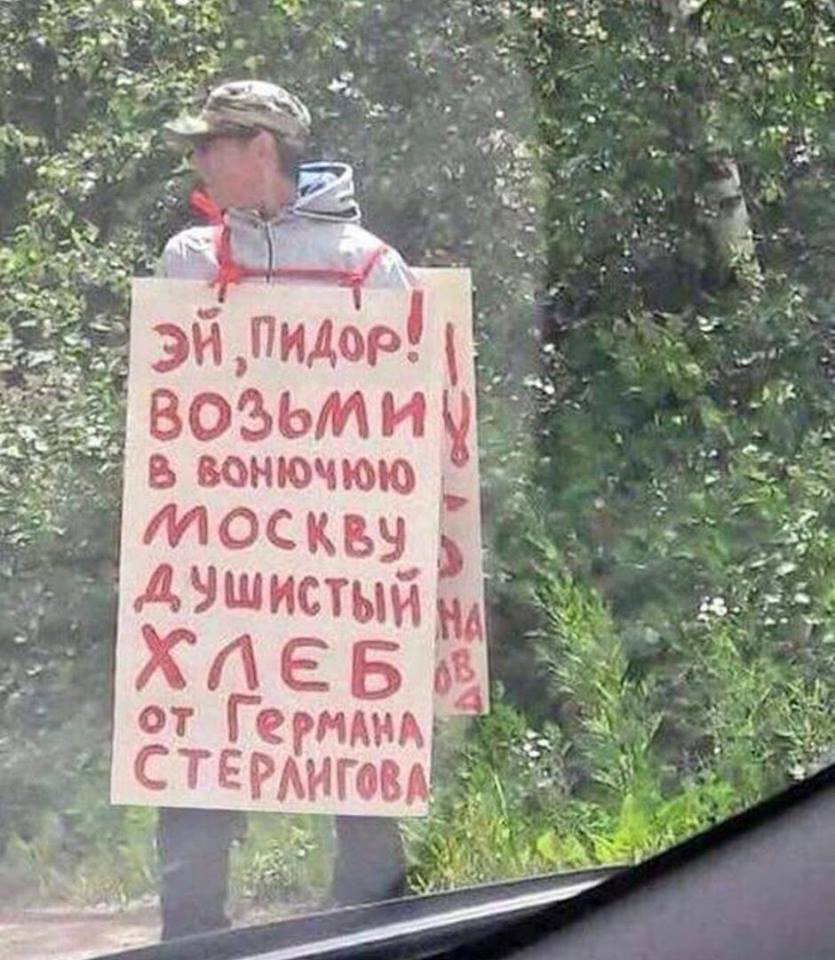 ЭЙ, ПИДОР!
ВОЗЬМИ
В ВОНЮЧЮЮ
МОСКВУ
ДУШИСТЫЙ
ХЛЕБ
ОТ ГЕРМАНА
СТЕРЛИГОВА